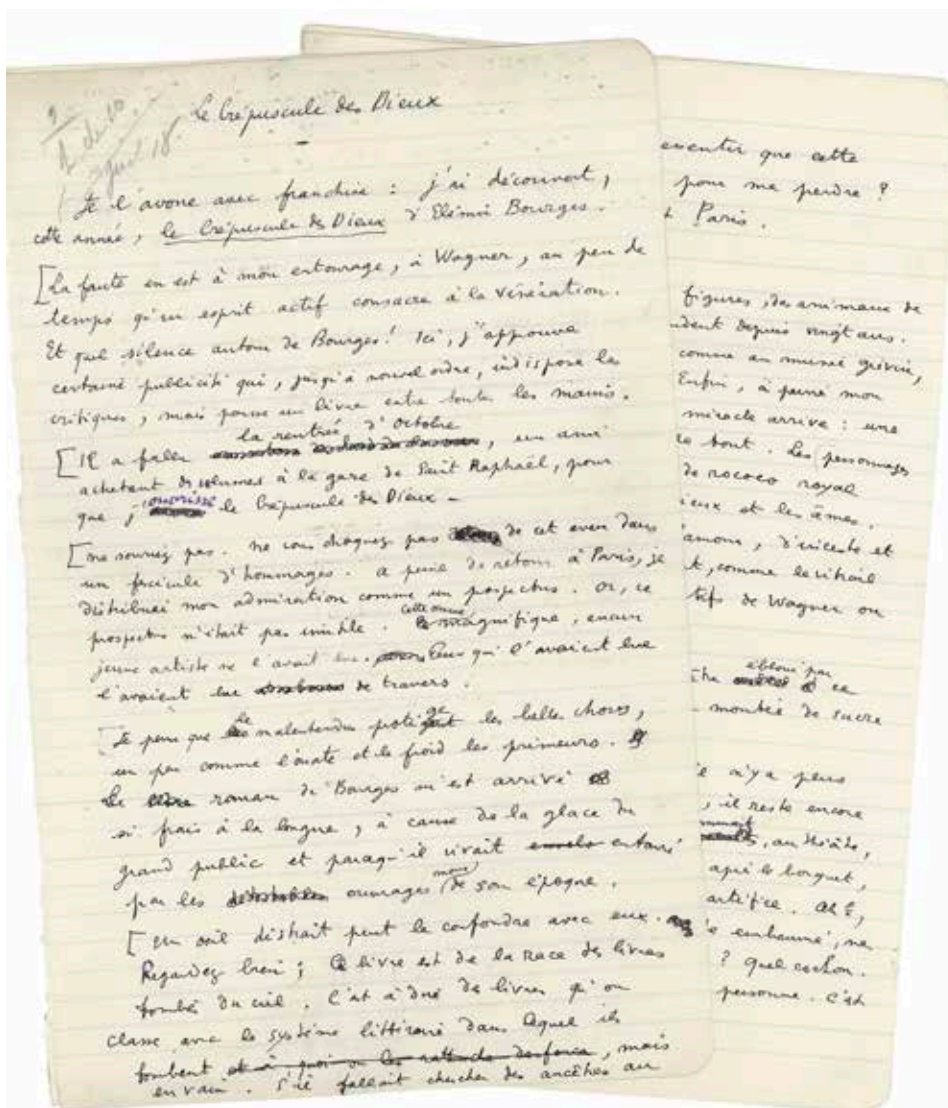 Le Crépuscule des Dieux
Je l'avoue avec franchise : j'ai découvert,
cette année, le Crépuscule des Dieux d'Elémir Bourges.
[La faute en est à mon entourage, à Wagner, au peu de
temps qu'un esprit actif consacre à la vénération.
Et quel silence autour de Bourges! Ici, j'approuve
certaine publicité qui, jusqu'à nouvel ordre, indispose les
critiques, mais pousse un livre entre toutes les mains.
la rentrée d'Octobre
[Il a fallu, un ami
achetant des volumes à la gare de Saint Raphaël, pour
que j'ouvrisse le Crépuscule des Dieux -
[ne souriez pas. ne vous choquez pas de cet aveu dans
un fascicule d'hommages. a peine de retour à Paris, je
distribuai mon admiration comme un prospectus. Or, ce
prospectus n'était pas inutile. cette œuvre magnifique, aucun
jeune artiste ne l'avait lue. Ceux qui l'avaient lue
l'avaient lue de travers.
[Je pense que le malentendu protège les belles choses,
un peu comme l'ouate et le froid les primeurs.
Le roman de Bourges m'est arrivé
si frais à la longue, à cause de la glace du
grand public et parcequ'il vivait entouré
par les ouvrages morts de son époque.
[Un œil distrait peut le confondre avec eux.
Regardez bien ; Ce livre est de la race des livres
tombés du ciel. C'est à dire de livres qu'on
classe avec le système littéraire dans lequel ils
tombent et à quoi on les rattache de force, mais
en vain. S'il fallait chercher des ancêtres au
que cette
pour me perdre ?
Paris.
figures, des animaux de
depuis vingt ans.
comme au musée grévin,
Enfin, à peine mon
miracle arrive : une
tout. Les personnages
de rococo royal
et les âmes.
d'inceste et
comme le vitrail
de Wagner ou
ébloui par
ce
montée de sucre
n'y a plus
, il reste encore
, au théâtre,
après le bouquet,
artifice. Ah !,
embaumé, ne
? Quel cochon.
personne. C'est